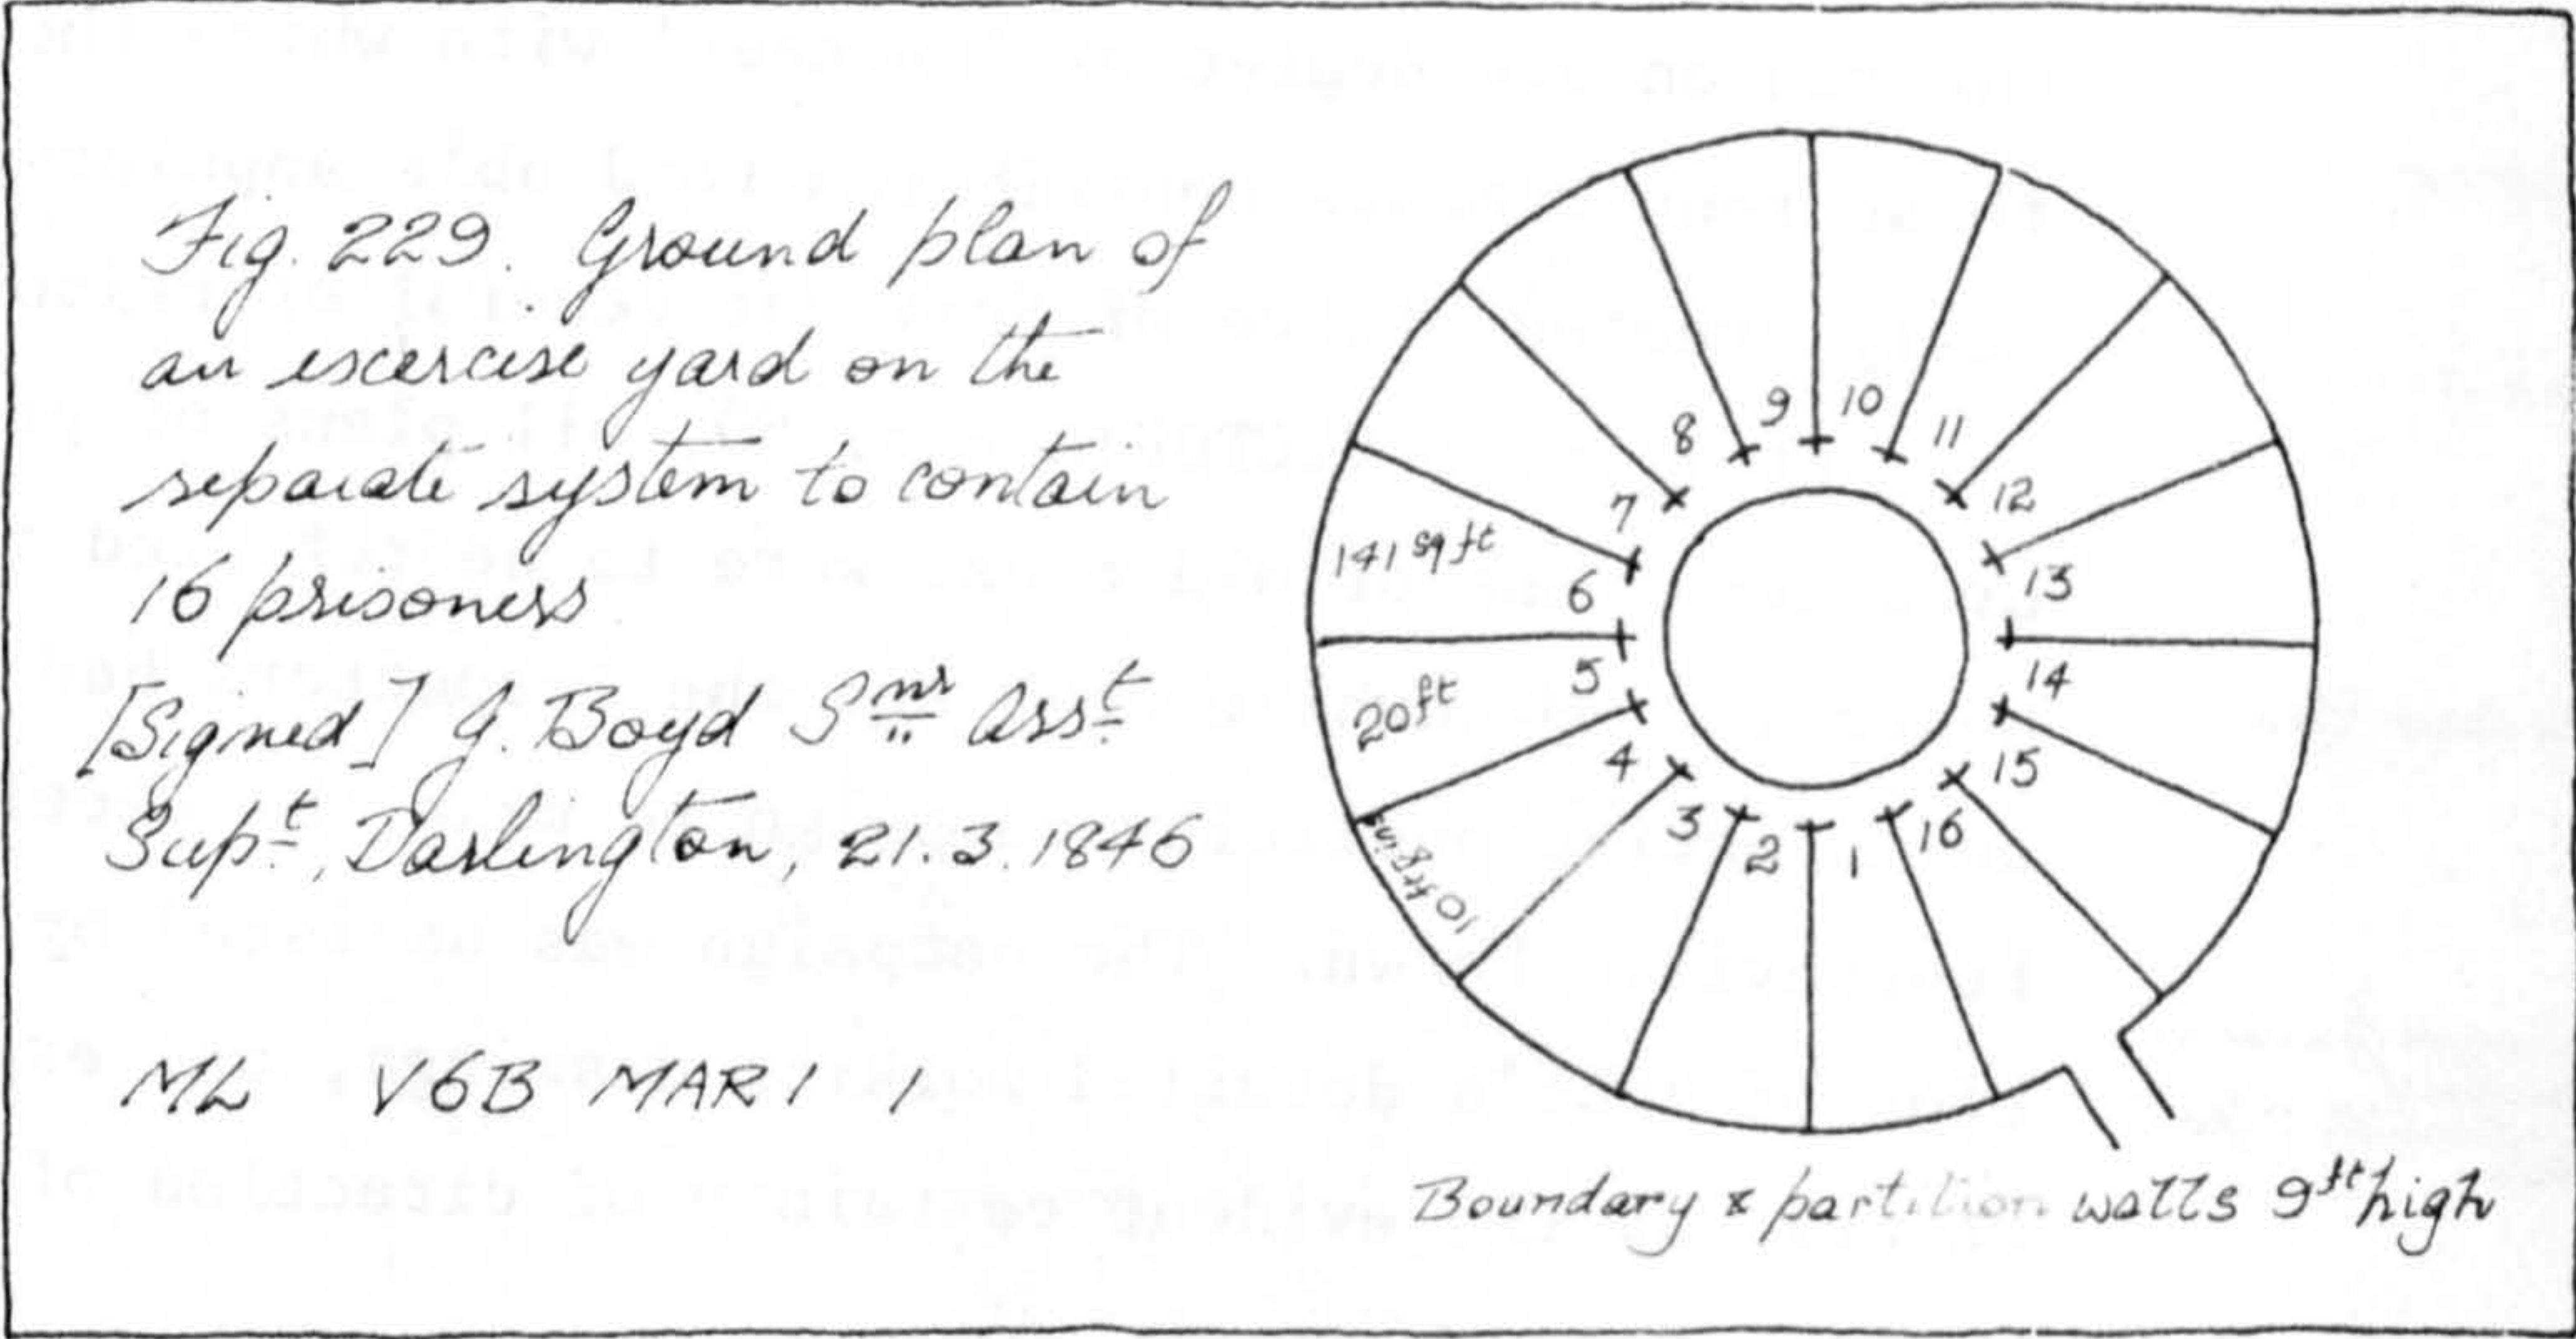 Fig. 229. Ground plan of
an excercise yard on the
separate system to contain
16 prisoners
[Signed] J. Boyd Snr Asst
Supt, Darlington, 21.3.1846
ML V6B MAR1 1
8 9 10 11
7 12
141 sq ft
6 13
5 14
20 ft
4 15
3 2 1 16
Boundary & partition walls 9ft high